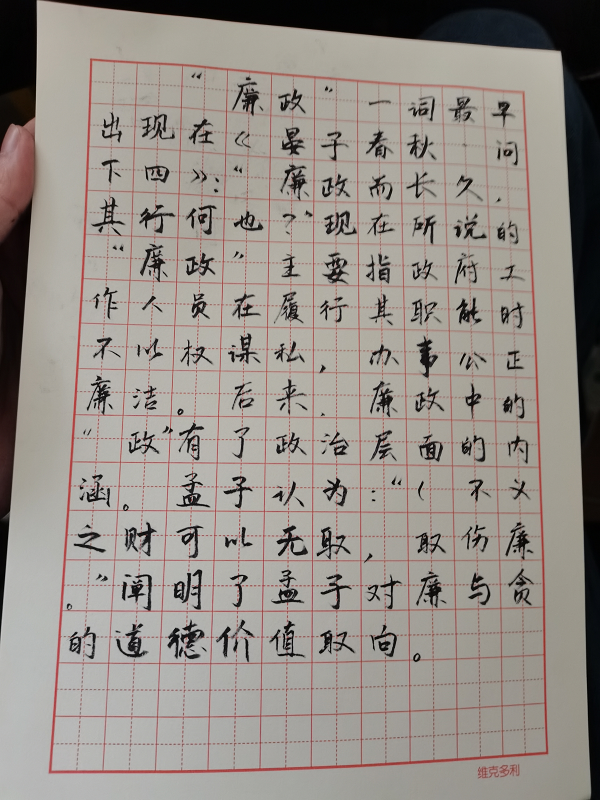 “廉政”一词最早
出现在《晏子春秋·问
下四》:“廉政而长久,
其行何也?”现在所说的
“廉政”主要指政府工
作人员在履行其职能时
不以权谋私,办事公正
廉洁。后来,廉政中的
“政”有了政治层面的内
涵。孟子认为:“(不义
之财可以无取,取伤廉
。”阐明了孟子对廉与贪
的道德价值取向。
维克多利